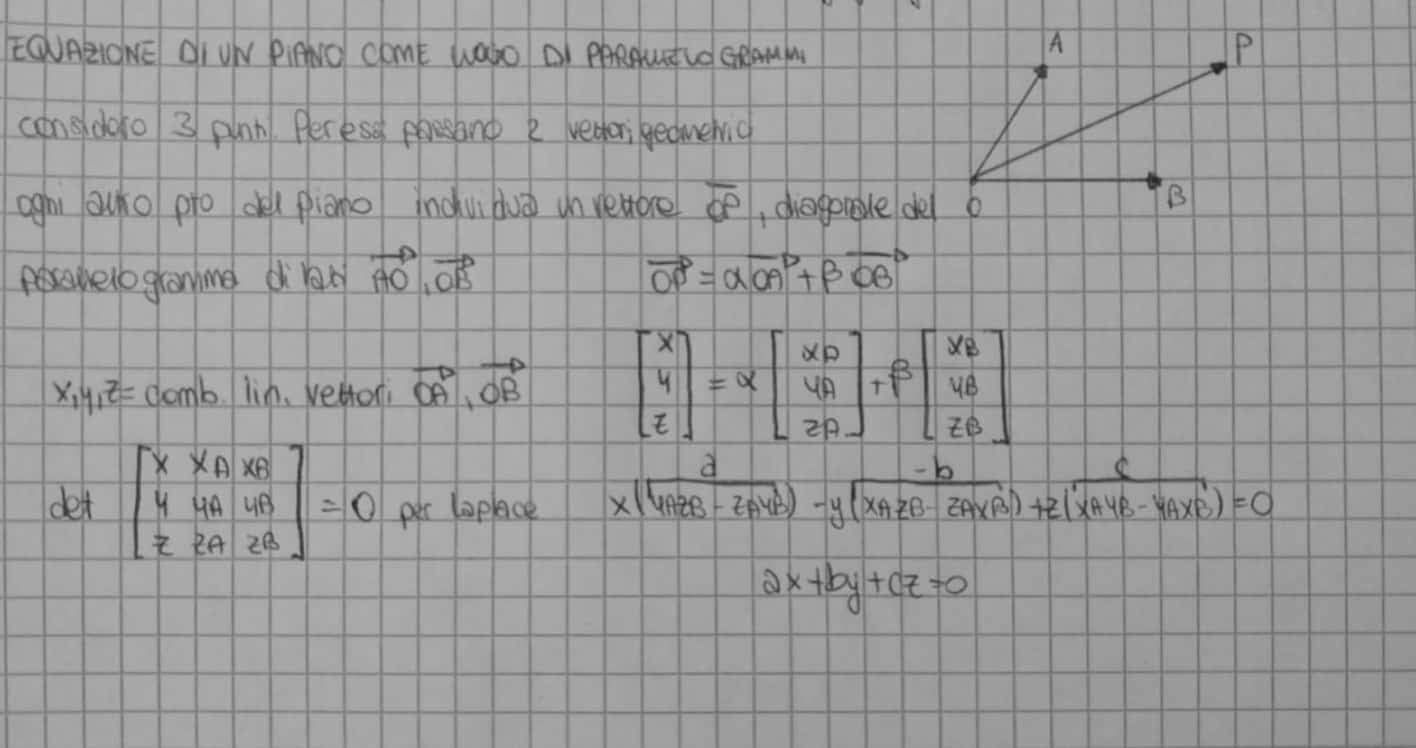 EQUAZIONE DI UN PIANO COME LUOGO DI PARALLELOGRAMMI
A
P
considero 3 punti. Per essi passano 2 vettori geometrici
ogni altro pto del piano individua un vettore OP, diagonale del
O
B
parallelogramma di lati AO, OB
OP = α OA + β OB
x,y,z = comb. lin. vettori OA, OB
[x y z] = α [xA yA zA] + β [xB yB zB]
det [x xA xB
y yA yB
z zA zB] = 0 per laplace
a -b c
x(yAzB - zAyB) - y(xAzB - zAxB) + z(xAyB - yAxB) = 0
ax + by + cz = 0